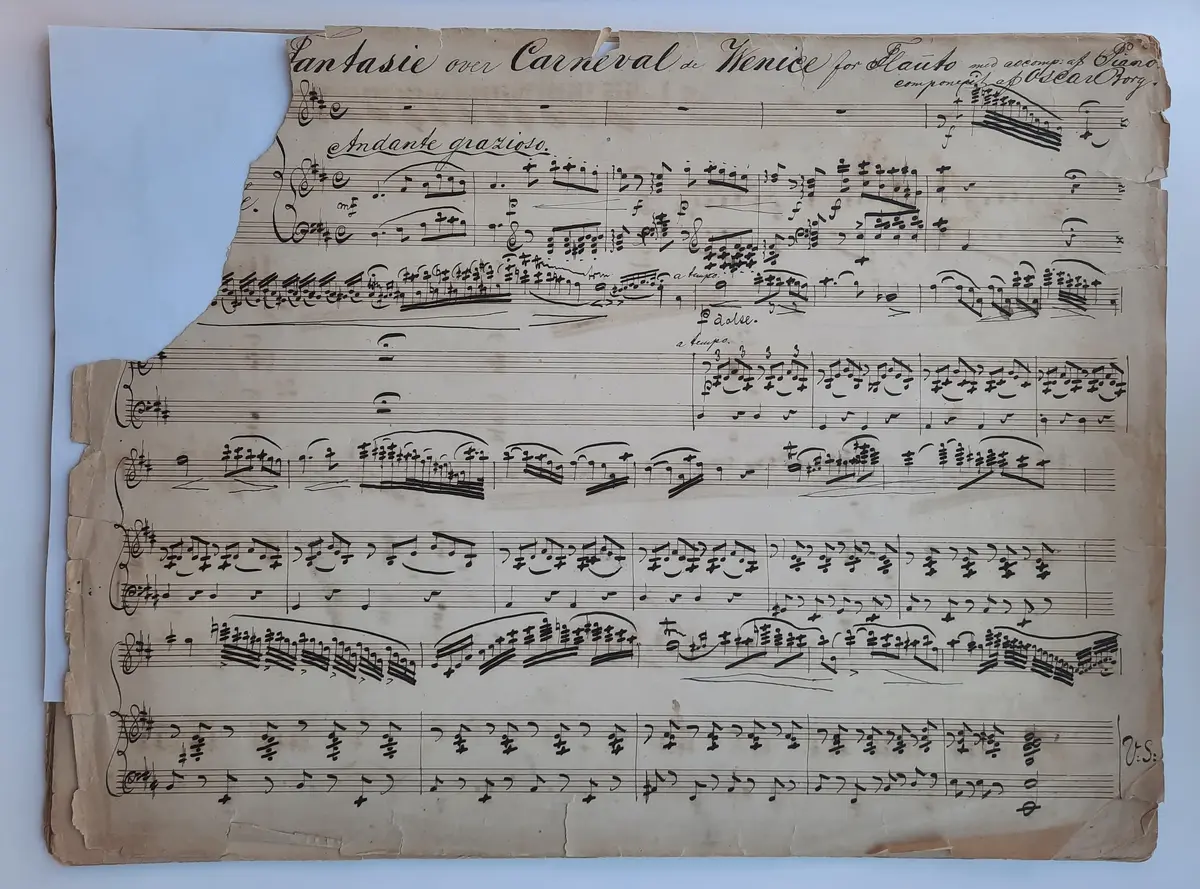 Fantasie over Carneval de Wenice for Flauto med accomp: af Piano
componeret af Oscar Borg.
Andante grazioso.
mf
f
p
f
p
f
f
a tempo.
p dolse.
a tempo.
3 3 3 3
p
V: S: